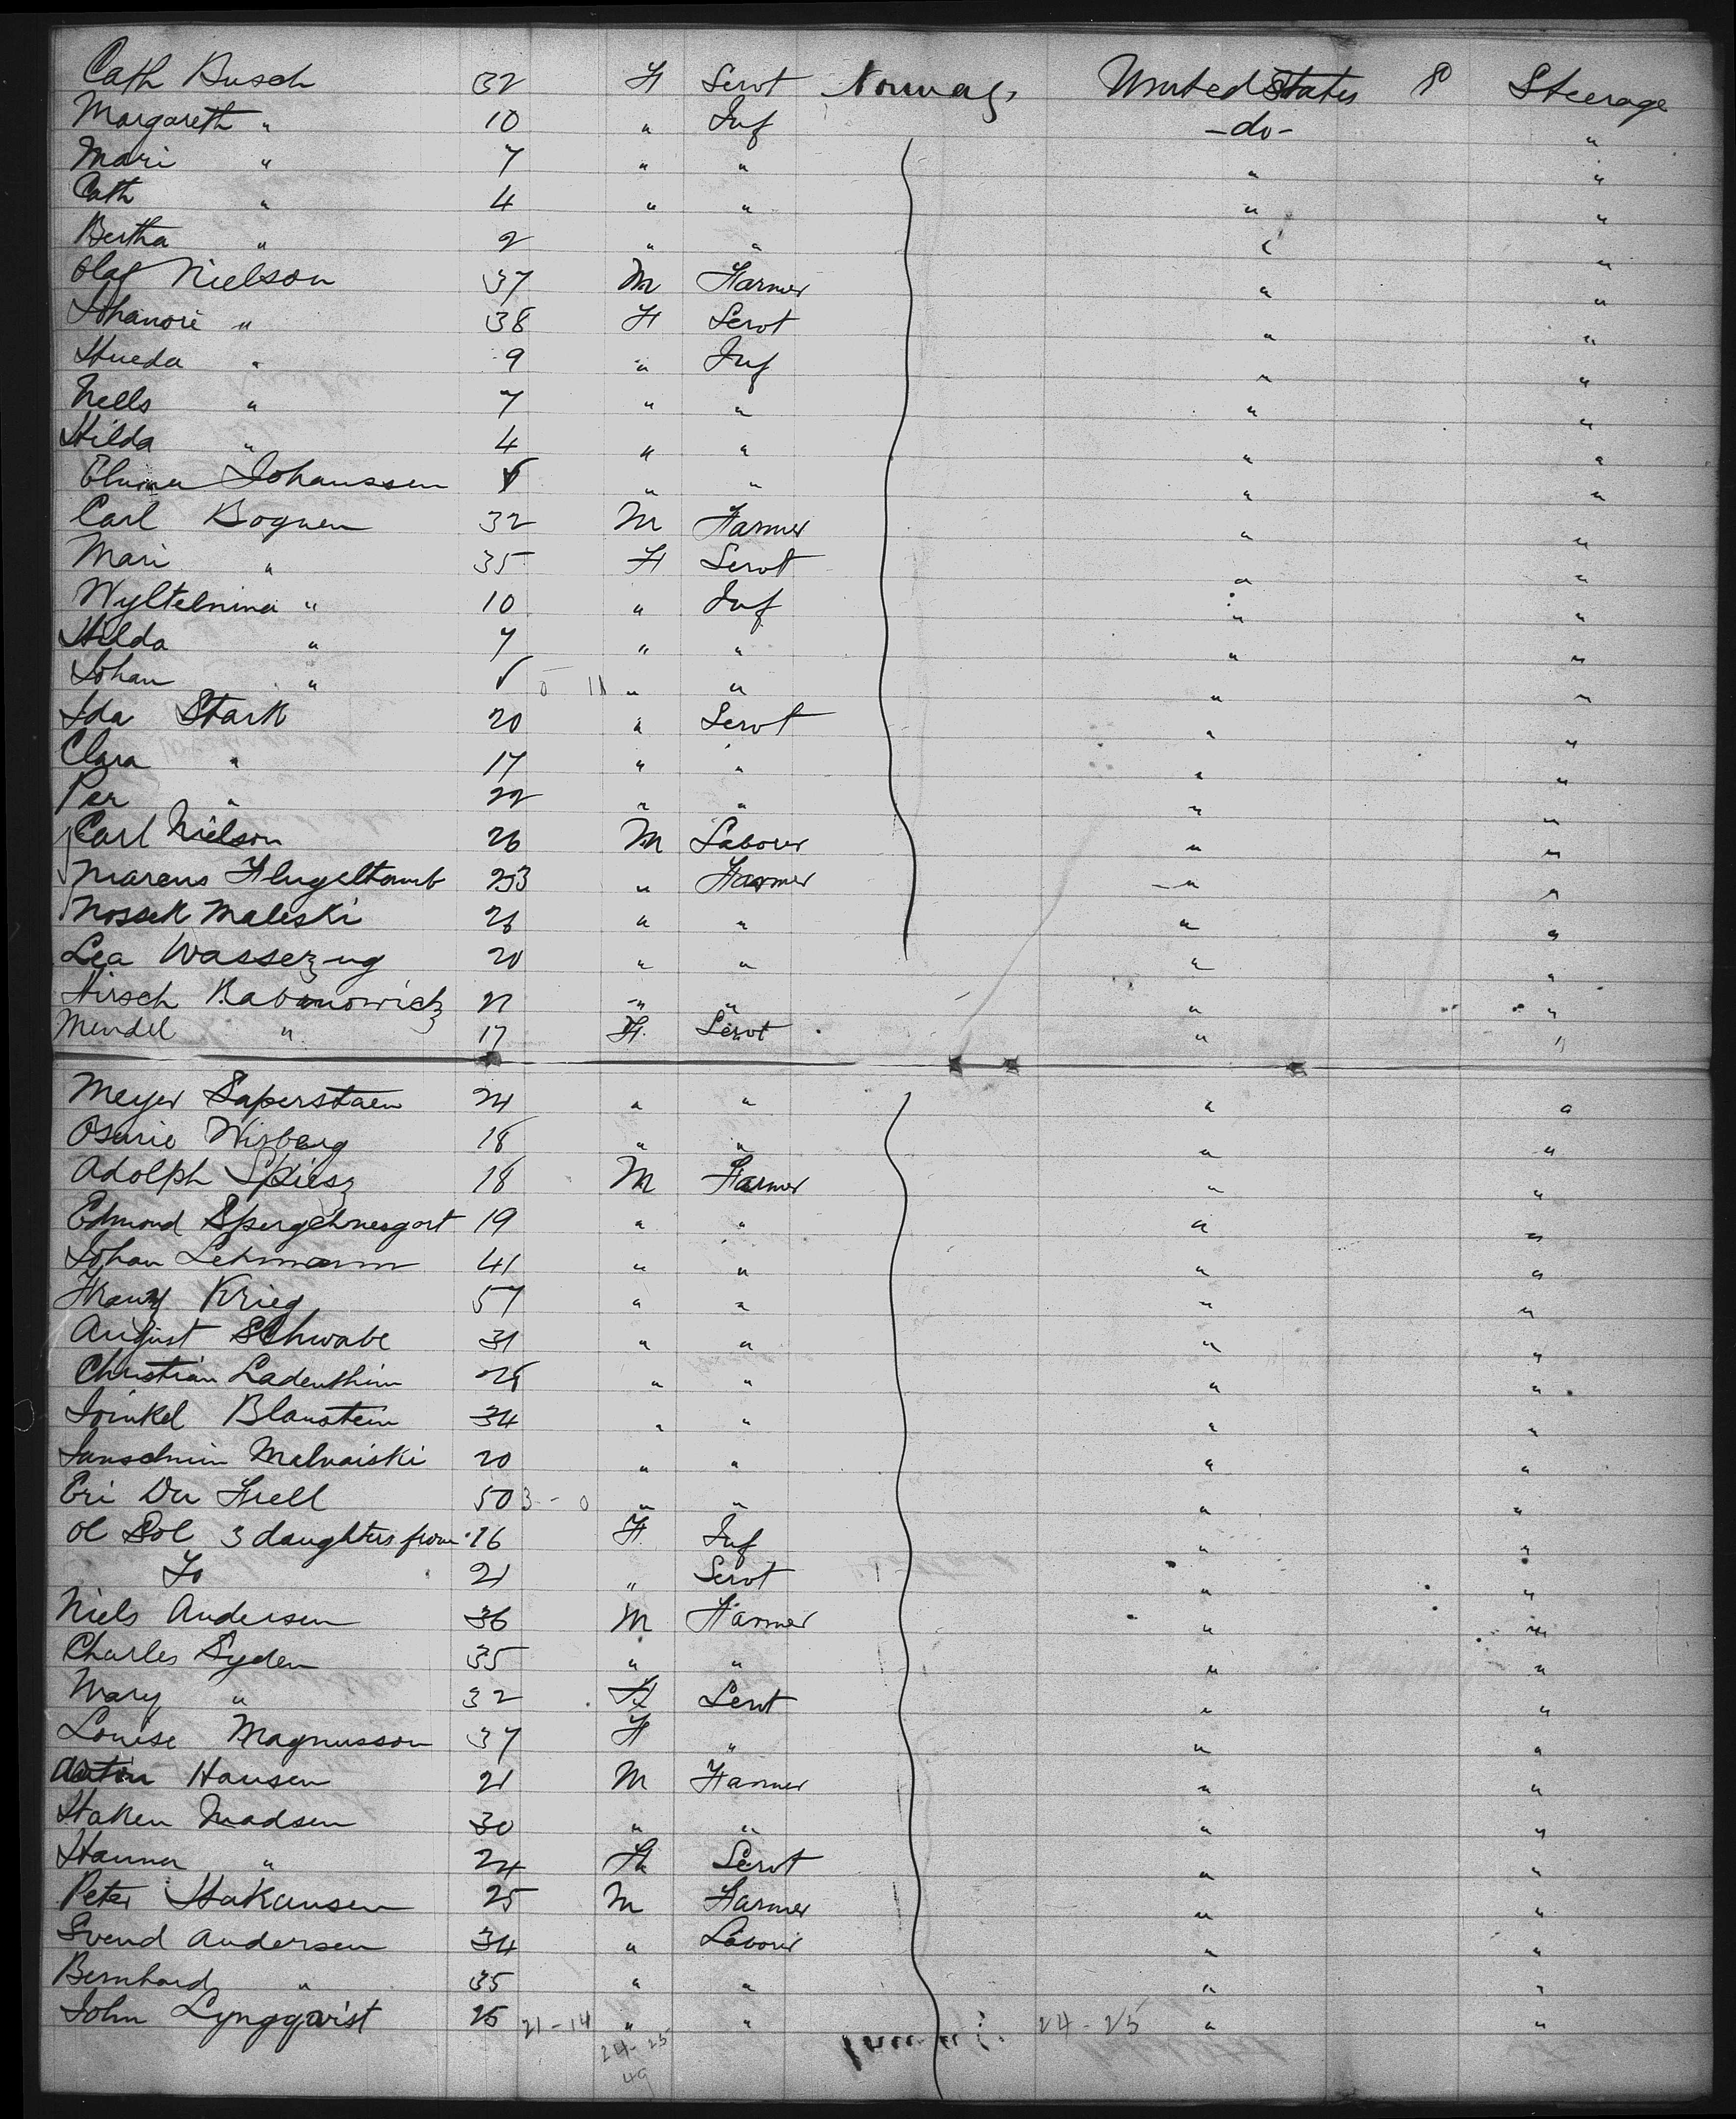 Cath Busch 32 F Servt Norway United States P Steerage
Margareth " 10 " Inf -do- "
Mari " 7 " " " "
Cath " 4 " " " "
Bertha " 2 " " " "
Olaf Nielson 37 M Farmer " "
Johanore " 38 F Servt " "
Hueda " 9 " Inf " "
Nells " 7 " " " "
Hilda " 4 " " " "
Johanssen " " " "
Carl Bognen 32 M Farmer " "
Mari " 35 F Servt " "
Wyltelnina " 10 " Inf " "
Hilda " 7 " " " "
Johan " 0 11 " " " "
Ida Stark 20 " Servt " "
Clara " 17 " " " "
Per " 22 " " " "
Carl Nielson 26 M Laborer " "
Marcus Flugeltaub 23 " Farmer " "
Nossek Maleski 26 " " " "
Lea Wasserzug 20 " " " "
Hirsch Rabonowicz 21 " " " "
Mendel " 17 F Servt " "
Meyer Saperstaen 24 " " " "
Osurie Wisberg 18 " " " "
Adolph Spiesz 18 M Farmer " "
Edmond 19 " " " "
Johan Lehmann 41 " " " "
Franz Krieg 57 " " " "
August Schwabe 31 " " " "
Christian Ladenthin 25 " " " "
Joinkel Blaustein 34 " " " "
20 " " " "
50 3 - 0 " " " "
3 daughters from 16 F Inf " "
To 21 " Servt " "
Niels Andersen 36 M Farmer " "
Charles Syden 35 " " " "
Mary " 32 F Servt " "
Louise Magnusson 37 F " " "
Anton Hansen 21 M Farmer " "
Haken Madsen 30 " " " "
Hanna " 24 F Servt " "
Peter Hakansen 25 M Farmer " "
Svend Andersen 34 " Laborer " "
Bernhard " 35 " " " "
John Lyngqvist 25 21-14 " " 24-25 " "
24-25
49